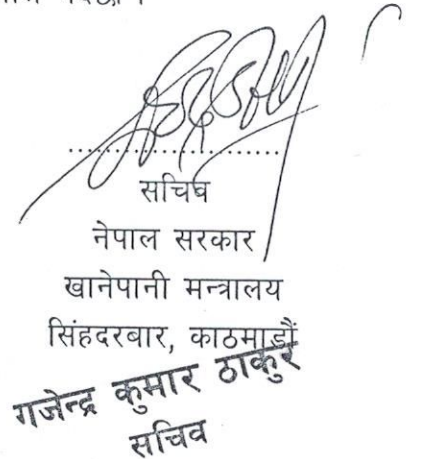 ..............................
सचिव
नेपाल सरकार
खानेपानी मन्त्रालय
सिंहदरबार, काठमाडौं
गजेन्द्र कुमार ठाकुर
सचिव